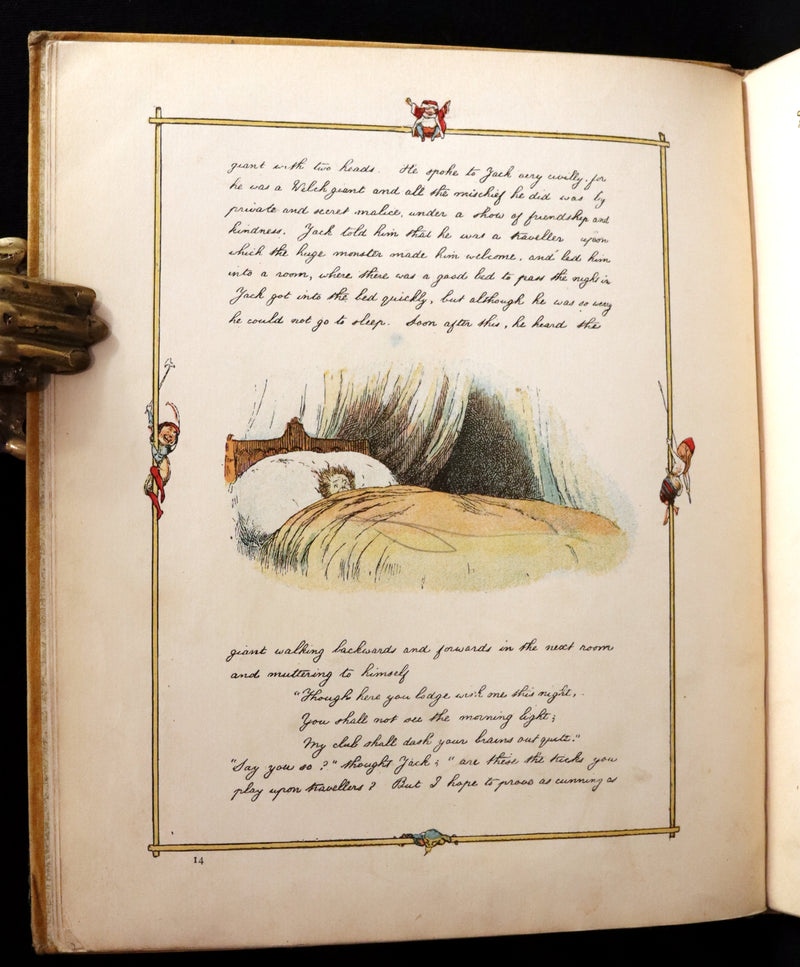 giant with two heads. He spoke to Jack very civilly, for
he was a Welch giant and all the mischief he did was by
private and secret malice, under a show of friendship and
kindness. Jack told him that he was a traveller upon
which the huge monster made him welcome, and led him
into a room, where there was a good bed to pass the night in
Jack got into the bed quickly, but although he was so very
he could not go to sleep. Soon after this, he heard the
giant walking backwards and forwards in the next room
and muttering to himself
"Though here you lodge with me this night,
You shall not see the morning light;
My club shall dash your brains out quite."
"Say you so?" thought Jack; "are these the tricks you
play upon travellers? But I hope to prove as cunning as
14